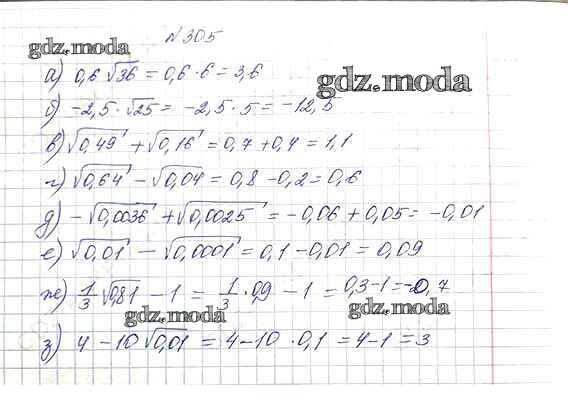 №305
gdz.moda
а) 0,6 √36 = 0,6 · 6 = 3,6
gdz.moda
б) -2,5 · √25 = -2,5 · 5 = -12,5
в) √0,49 + √0,16 = 0,7 + 0,4 = 1,1
г) √0,64 - √0,04 = 0,8 - 0,2 = 0,6
д) -√0,0036 + √0,0025 = -0,06 + 0,05 = -0,01
е) √0,01 - √0,0001 = 0,1 - 0,01 = 0,09
ж) 1/3 √0,81 - 1 = 1/3 · 0,9 - 1 = 0,3 - 1 = -0,7
gdz.moda
gdz.moda
з) 4 - 10 √0,01 = 4 - 10 · 0,1 = 4 - 1 = 3